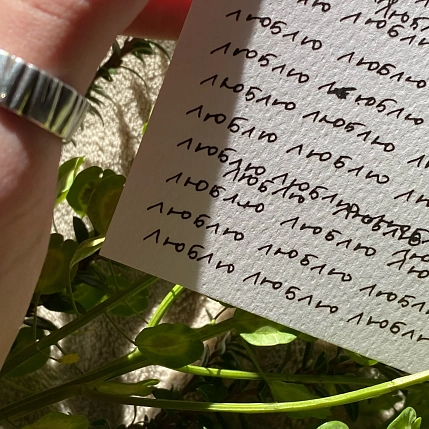 люблю люблю
люблю люблю
люблю люблю
люблю люблю
люблю люблю
люблю люблю
люблю люблю
люблю люблю люблю
люблю люблю люблю
люблю люблю
люблю люблю люблю